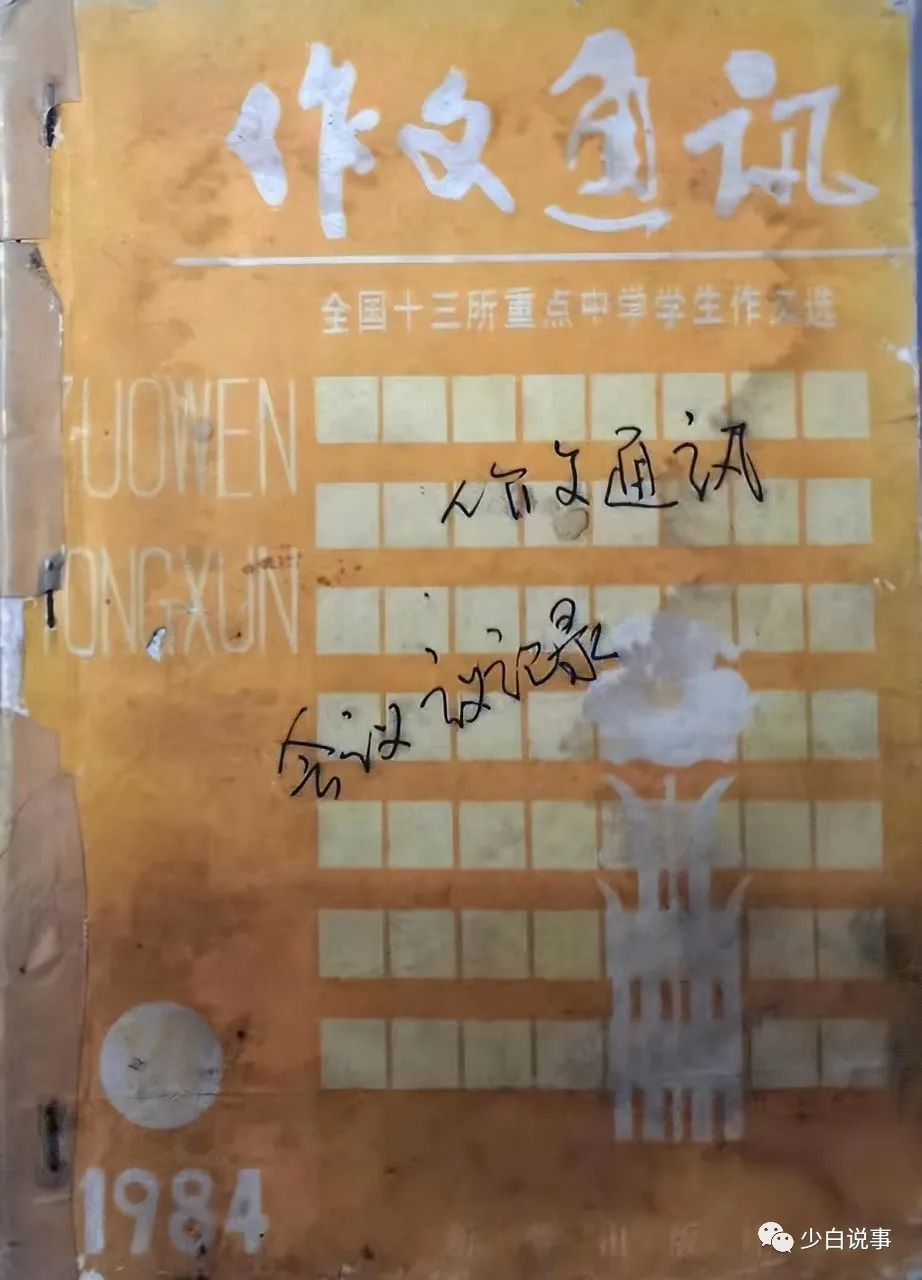 作文通讯
全国十三所重点中学学生作文选
ZUOWEN
TONGXUN
作文通讯
会议议记录
1984
出版
少白说事